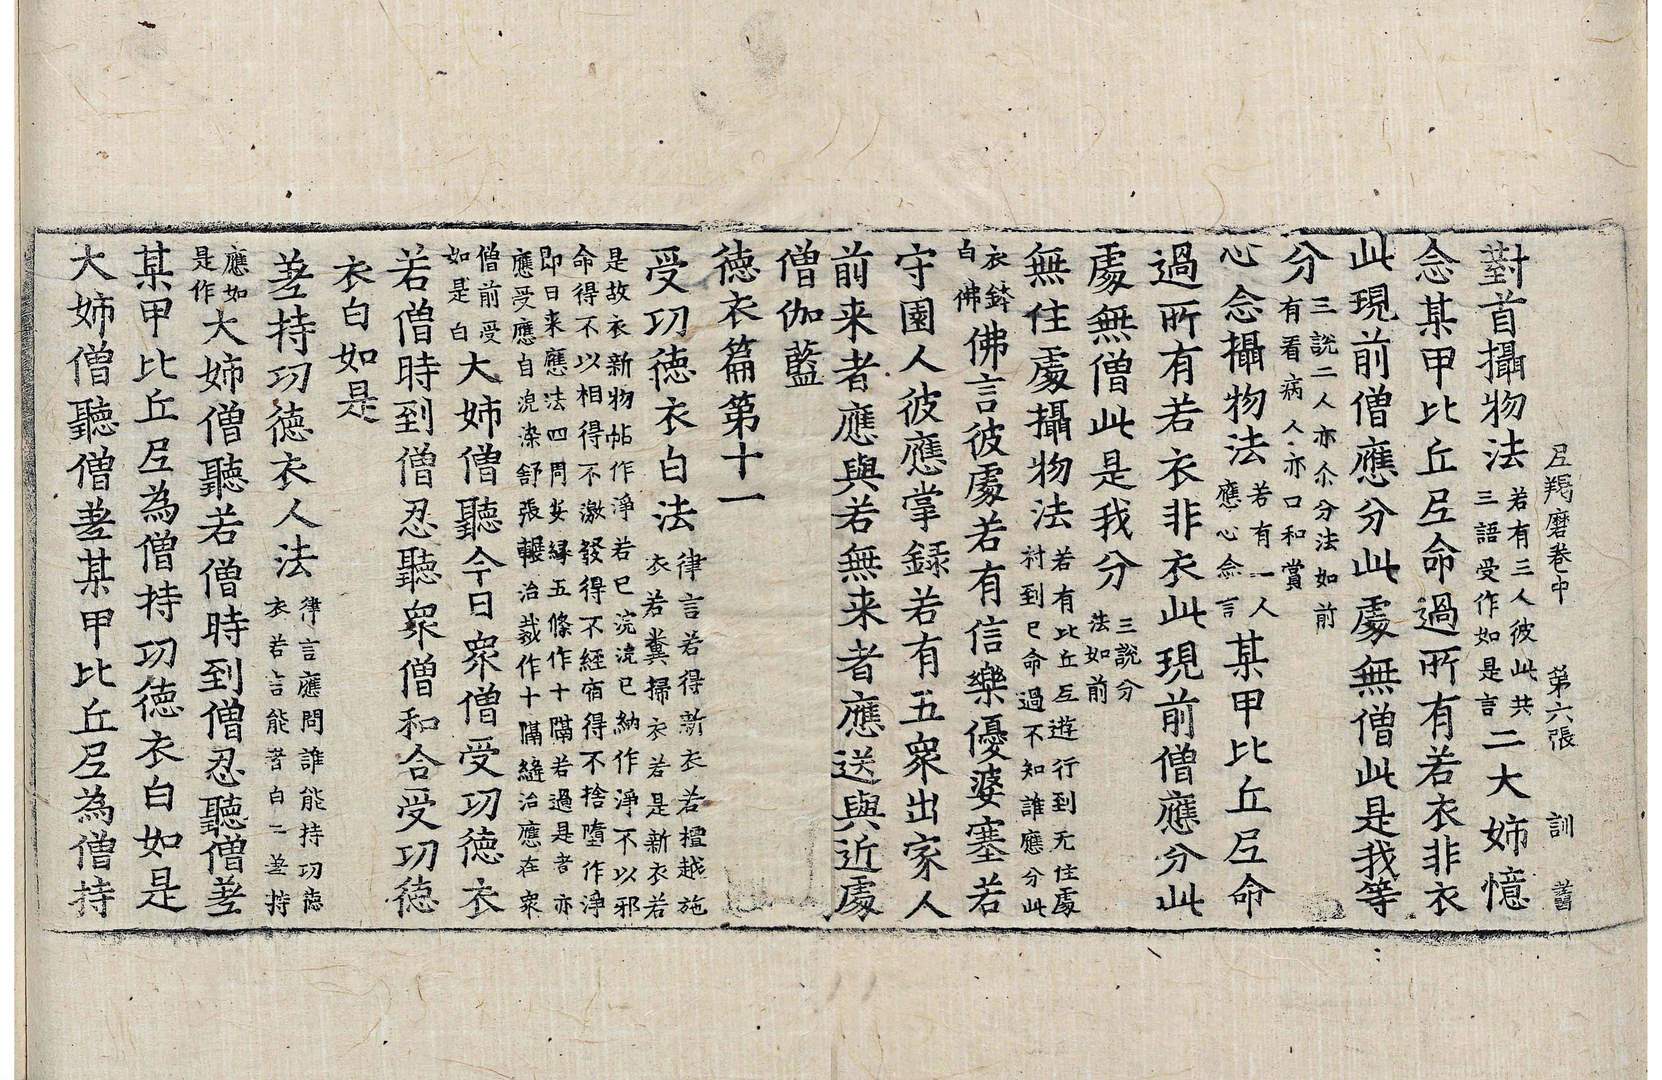 尼羯磨卷中 第六張 訓
對首攝物法 若有三人彼此共 三語受作如是言 二大姊憶
念某甲比丘尼命過所有若衣非衣
此現前僧應分此處無僧此是我等
分 三說二人亦尒分法如前 有看病人亦口和賞
心念攝物法 若有一人 應心念言 某甲比丘尼命
過所有若衣非衣此現前僧應分此
處無僧此是我分 三說分 法如前
無住處攝物法 若有比丘尼遊行到无住處 村到已命過不知誰應分此
衣鉢 白佛 佛言彼處若有信樂優婆塞若
守園人彼應掌録若有五眾出家人
前来者應與若無来者應送與近處
僧伽藍
徳衣篇第十一
受功徳衣白法 律言若得新衣若檀越施 衣若糞掃衣若是新衣若
是故衣新物帖作淨若已浣浣已納作淨不以邪 命得不以相得不激發得不經宿得不捨墮作淨
即日来應法四周安縁五條作十隔若過是者亦 應受應自浣染舒張輾治裁作十隔縫治應在眾
僧前受 如是白 大姊僧聽今日眾僧受功徳衣
若僧時到僧忍聽眾僧和合受功徳
衣白如是
差持功徳衣人法 律言應問誰能持功徳 衣若言能者白二差持
應如 是作 大姊僧聽若僧時到僧忍聽僧差
某甲比丘尼為僧持功徳衣白如是
大姊僧聽僧差某甲比丘尼為僧持